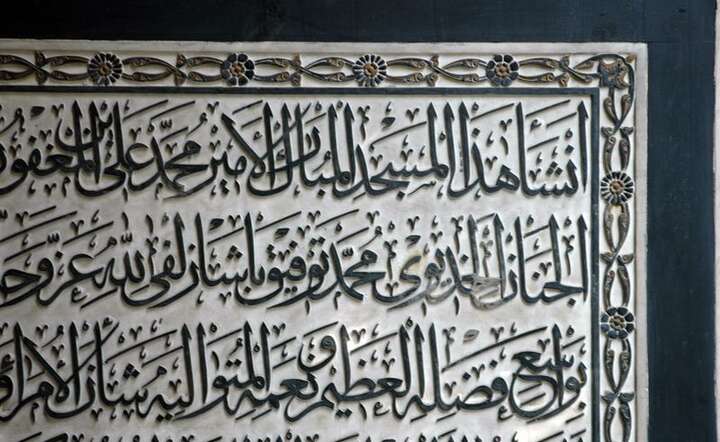 انشأ هذا المسجد المبارك الامير محمد علي بن المغفور
الجنان الخديوى محمد توفيق باشا زلفى لله عز
بواسع فضله العظيم ونعمه المتوالية شان